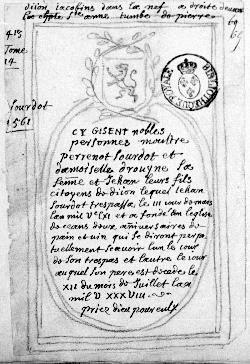 dijon jacofins dans la nef a droite devant
la chple ste anne tumbe de pierre
69
415
Tome
14
Jourdot
1561
BIBLIOTHEQUE ROYALE
CY GISENT nobles
personnes maistre
perrenot Jourdot et
damoiselle drouyne sa
femme et Jehan leurs fils
citoyens de dijon lequel Jehan
Jourdot trespassa le III jour de mars
lan mil Vc LXI et a fondé en leglise
de ceans deux anniversaires de
pain et vin qui se diront perpe
tuellement scavoir lun le jour
de son trespas et lautre le jour
auquel son pere est decedé le
XII du mois de Juillet lan
mil V XXXVIII
priez dieu pour eulx